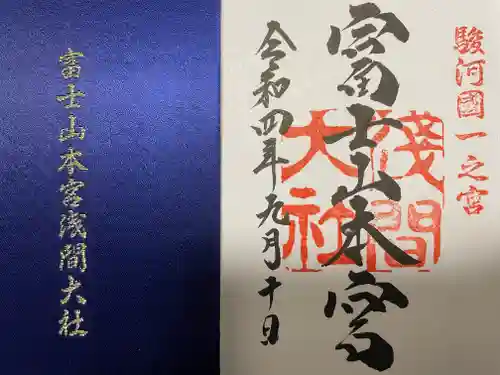 駿河國一之宮
富士山本宮
淺間
大社
令和四年九月十日
富士山本宮浅間大社